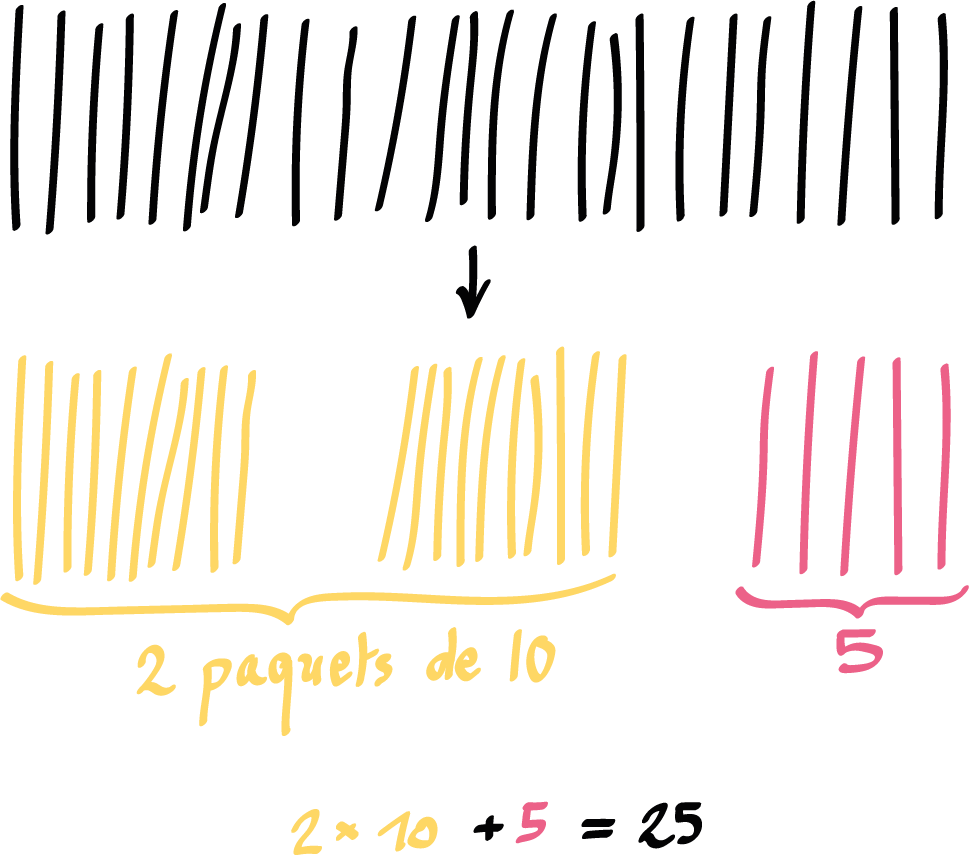 2 paquets de 10
5
2 × 10 + 5 = 25